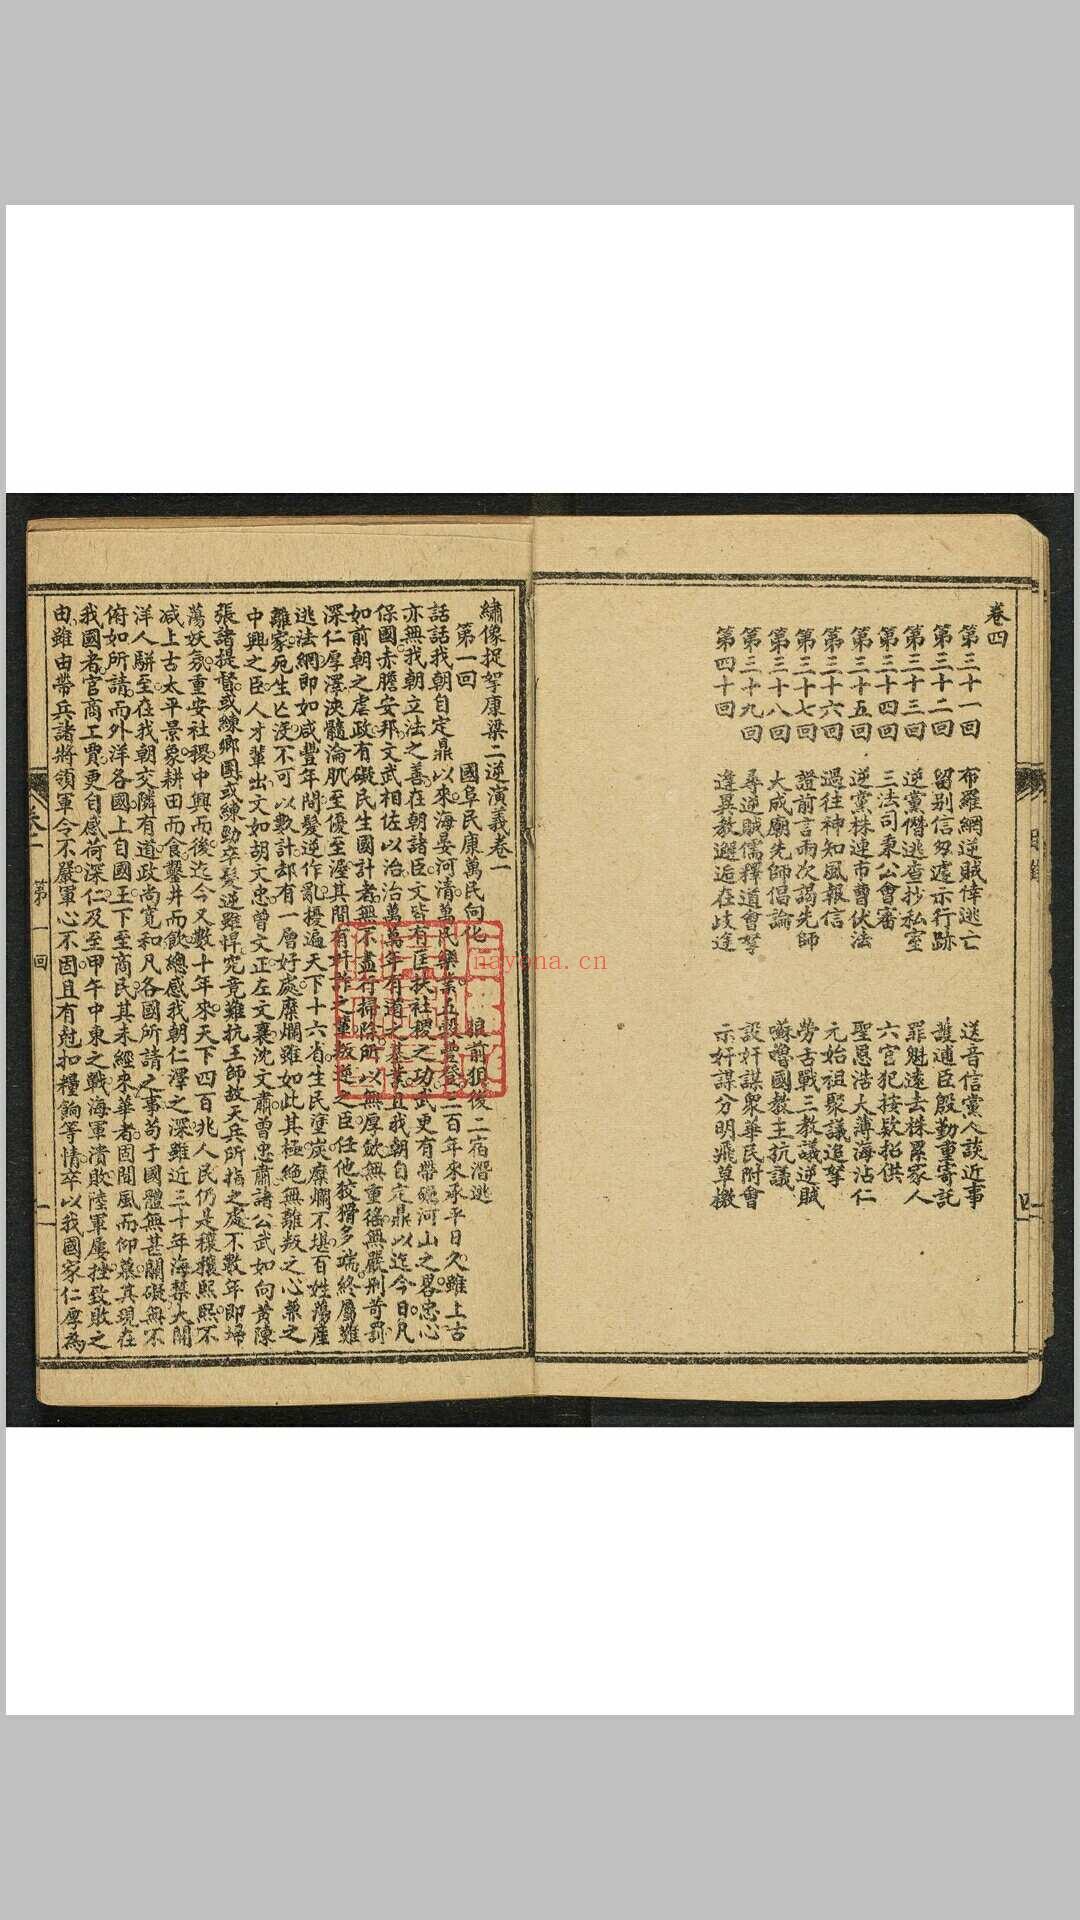 卷四
第三十一回 布羅網逆賊倖逃亡 送音信黨人談近事
第三十二回 留别信匆遽示行跡 護逋臣殷勤重寄託
第三十三回 逆黨僭逃查抄私室 罪魁遠去株累家人
第三十四回 三法司秉公會審 六官犯按欵招供
第三十五回 逆黨株連市曹伏法 聖恩浩大薄海沾仁
第三十六回 過往神知風報信 元始祖聚議追拏
第三十七回 證前言兩次謁先師 勞舌戰三教議逆賊
第三十八回 大成廟先師倡論 嘛嚕國教主抗議
第三十九回 尋逆賊儒釋道會拏 設奸謀衆華民附會
第四十回 逢異教邂逅在歧途 示奸謀分明飛草檄
目錄
四
繡像捉拏康梁二逆演義卷一
第一回 國阜民康萬民向化 狼前狽後二宿潛逃
話話我朝自定鼎以來海晏河清萬民樂業五穀豐登二百年來承平日久雖上古
亦無我朝立法之善在朝諸臣文皆有匡扶社稷之功武更有帶礪河山之畧忠心
保國赤膽安邦文武相佐以治治萬萬年有道之基業且我朝自定鼎以迄今日凡
如前朝之虐政有礙民生國計者無不盡行掃除所以無厚斂無重徭無嚴刑苛罰
深仁厚澤浹髓淪肌至優至渥其間有奸詐之輩叛逆之臣任他狡猾多端終屬難
逃法網即如咸豐年間髮逆作亂擾遍天下十六省生民塗炭糜爛不堪百姓蕩產
離家死生亡沒不可以數計却有一層好處糜爛雖如此其極絶無離叛之心兼之
中興之臣人才輩出文如胡文忠曾文正左文襄沈文肅曾忠肅諸公武如向黃陳
張諸提督或練鄉團或練勁卒髮逆雖悍究竟難抗王師故天兵所指之處不數年即掃
蕩妖氛重安社稷中興而後迄今又數十年來天下四百兆人民仍是穰穰熙熙不
减上古太平景象耕田而食鑿井而飲總感我朝仁澤之深雖近三十年海禁大開
洋人駢至在我朝交隣有道政尚寬和凡各國所請之事苟于國體無甚關礙無不
俯如所請而外洋各國上自國王下至商民其未經來華者固聞風而仰慕其現在
我國者官商工賈更自感荷深仁及至甲午中東之戰海軍潰敗陸軍屢挫致敗之
由雖由帶兵諸將領軍令不嚴軍心不固且有尅扣糧餉等情卒以我國家仁厚為
卷一
第一回
一
nayona.cn